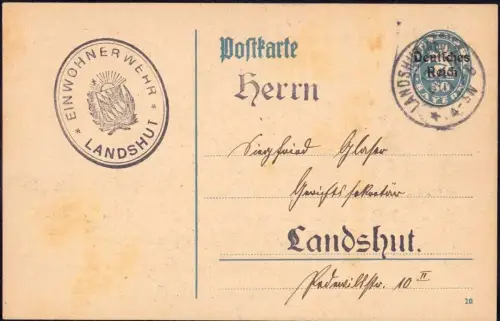 * EINWOHNERWEHR *
LANDSHUT
Postkarte
Deutsches
Reich
30
LANDSHUT
Herrn
Siegfried Glaser
Gerichtssekretär
Landshut.
Pedewillstr. 10 II
20